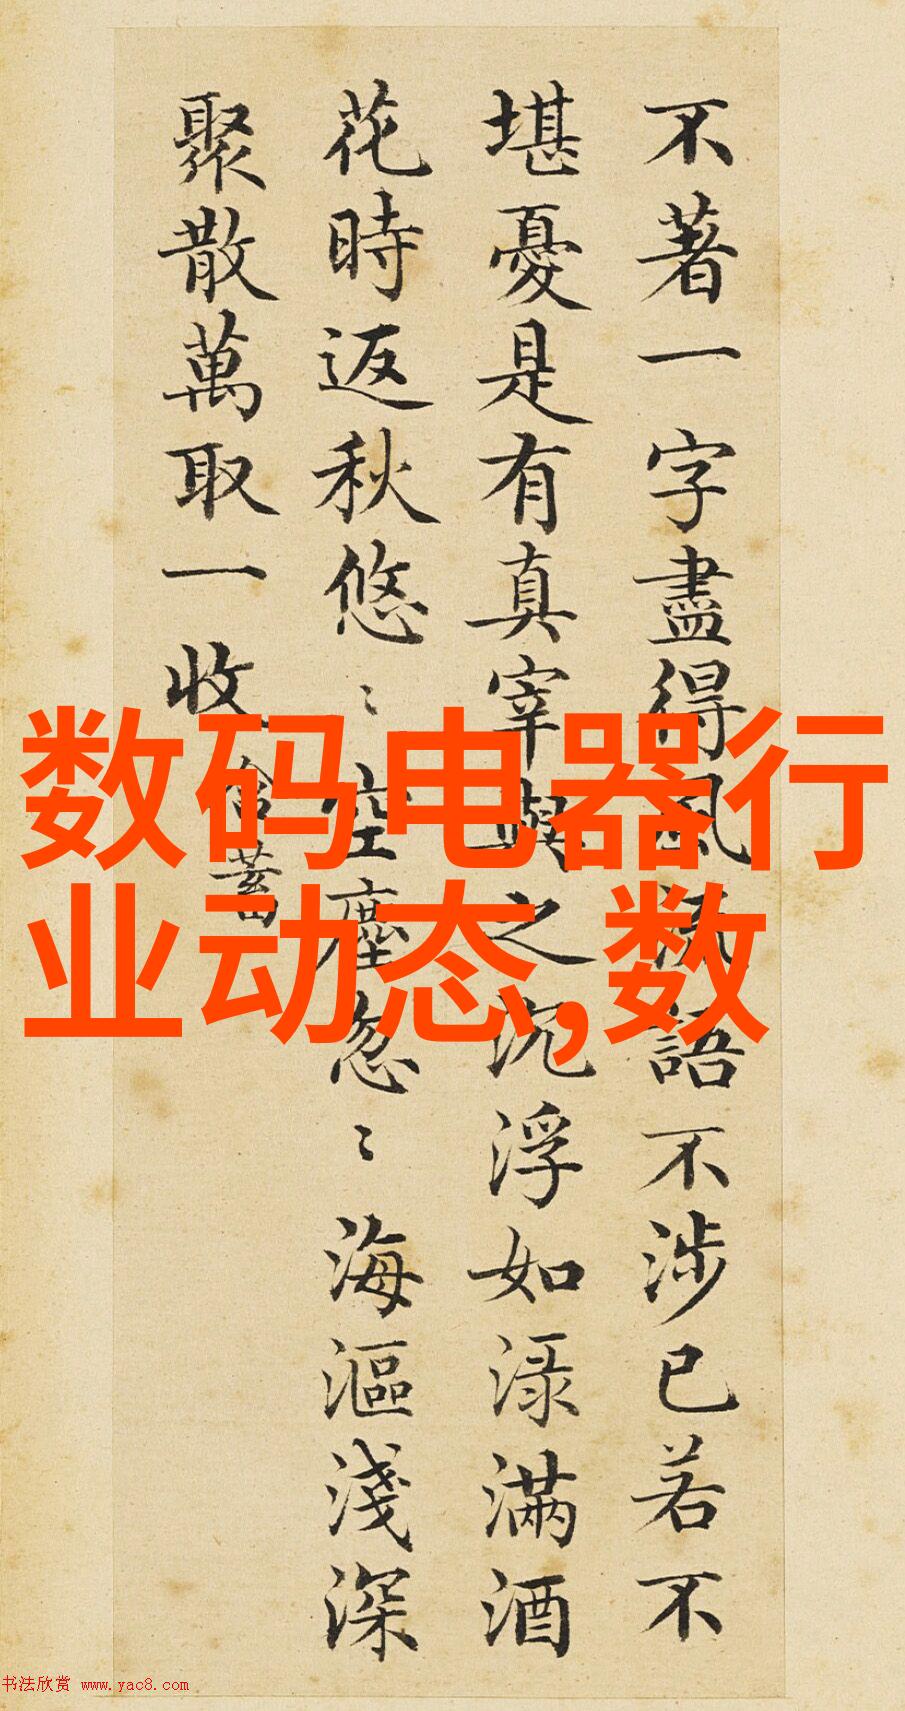 不著一字盡得風流語不涉已若不
堪憂是有真宰與之沉浮如渌滿酒
花時返秋悠〻空塵忽〻海漚淺深
聚散萬取一收
含蓄
数码电器行
业动态,数
书法欣赏 www.yac8.com